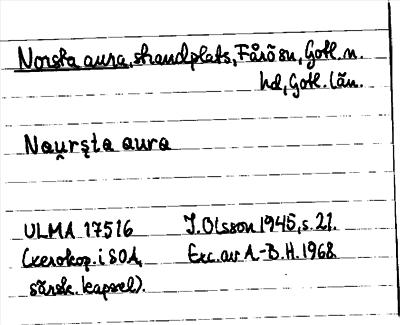 Norsta aura, strandplats, Fårö sn, Gotl. n.
hd, Gotl. län.
Nau̯rşta aura
ULMA 17516 J. Olsson 1945, s. 21.
(xerokop. i SOA, Exc. av A-B.H. 1968.
särsk. kapsel).